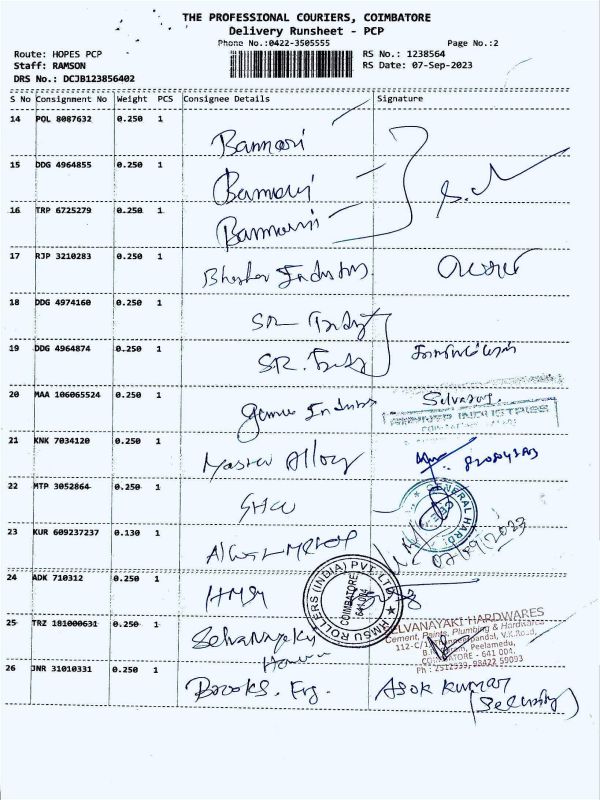 THE PROFESSIONAL COURIERS, COIMBATORE
Delivery Runsheet - PCP
Phone No.:0422-3505555 Page No.:2
Route: HOPES PCP RS No.: 1238564
Staff: RAMSON RS Date: 07-Sep-2023
DRS No.: DCJB123856402
S No Consignment No Weight PCS Consignee Details Signature
14 POL 8087632 0.250 1 Bannari
15 DDG 4964855 0.250 1 Bannari
16 TRP 6725279 0.250 1 Bannari
17 RJP 3210283 0.250 1
18 DDG 4974160 0.250 1 SR
19 DDG 4964874 0.250 1 SR.
20 MAA 106065524 0.250 1 Selvaraj.
INDUSTRIES
21 KNK 7034120 0.250 1 Master Alloy
22 MTP 3052864 0.250 1
GENERAL HARD
23 KUR 609237237 0.130 1
07/09/2023
24 ADK 710312 0.250 1
HMSU ROLLERS (INDIA) PVT. LTD
COIMBATORE
641 004.
25 TRZ 181000631 0.250 1 Selvanayaki
SELVANAYAKI HARDWARES
Cement, Paints, Plumbing & Hardwares
Peelamedu,
COIMBATORE - 641 004.
Ph : 2512539, 98422 59093
26 JNR 31010331 0.250 1 Brooks. Asok Kumar
(Security)